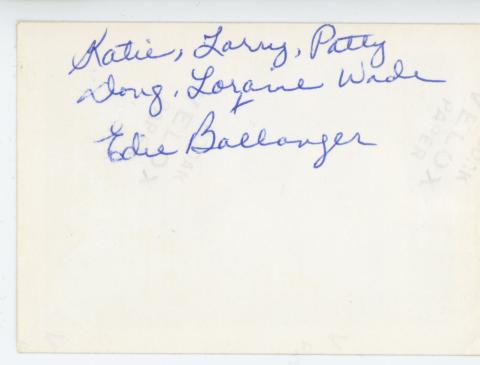 Katie, Larry, Patty
Doug, Loraine Wade
+
Edie Ballanger
VELOX
PAPER
VELOX